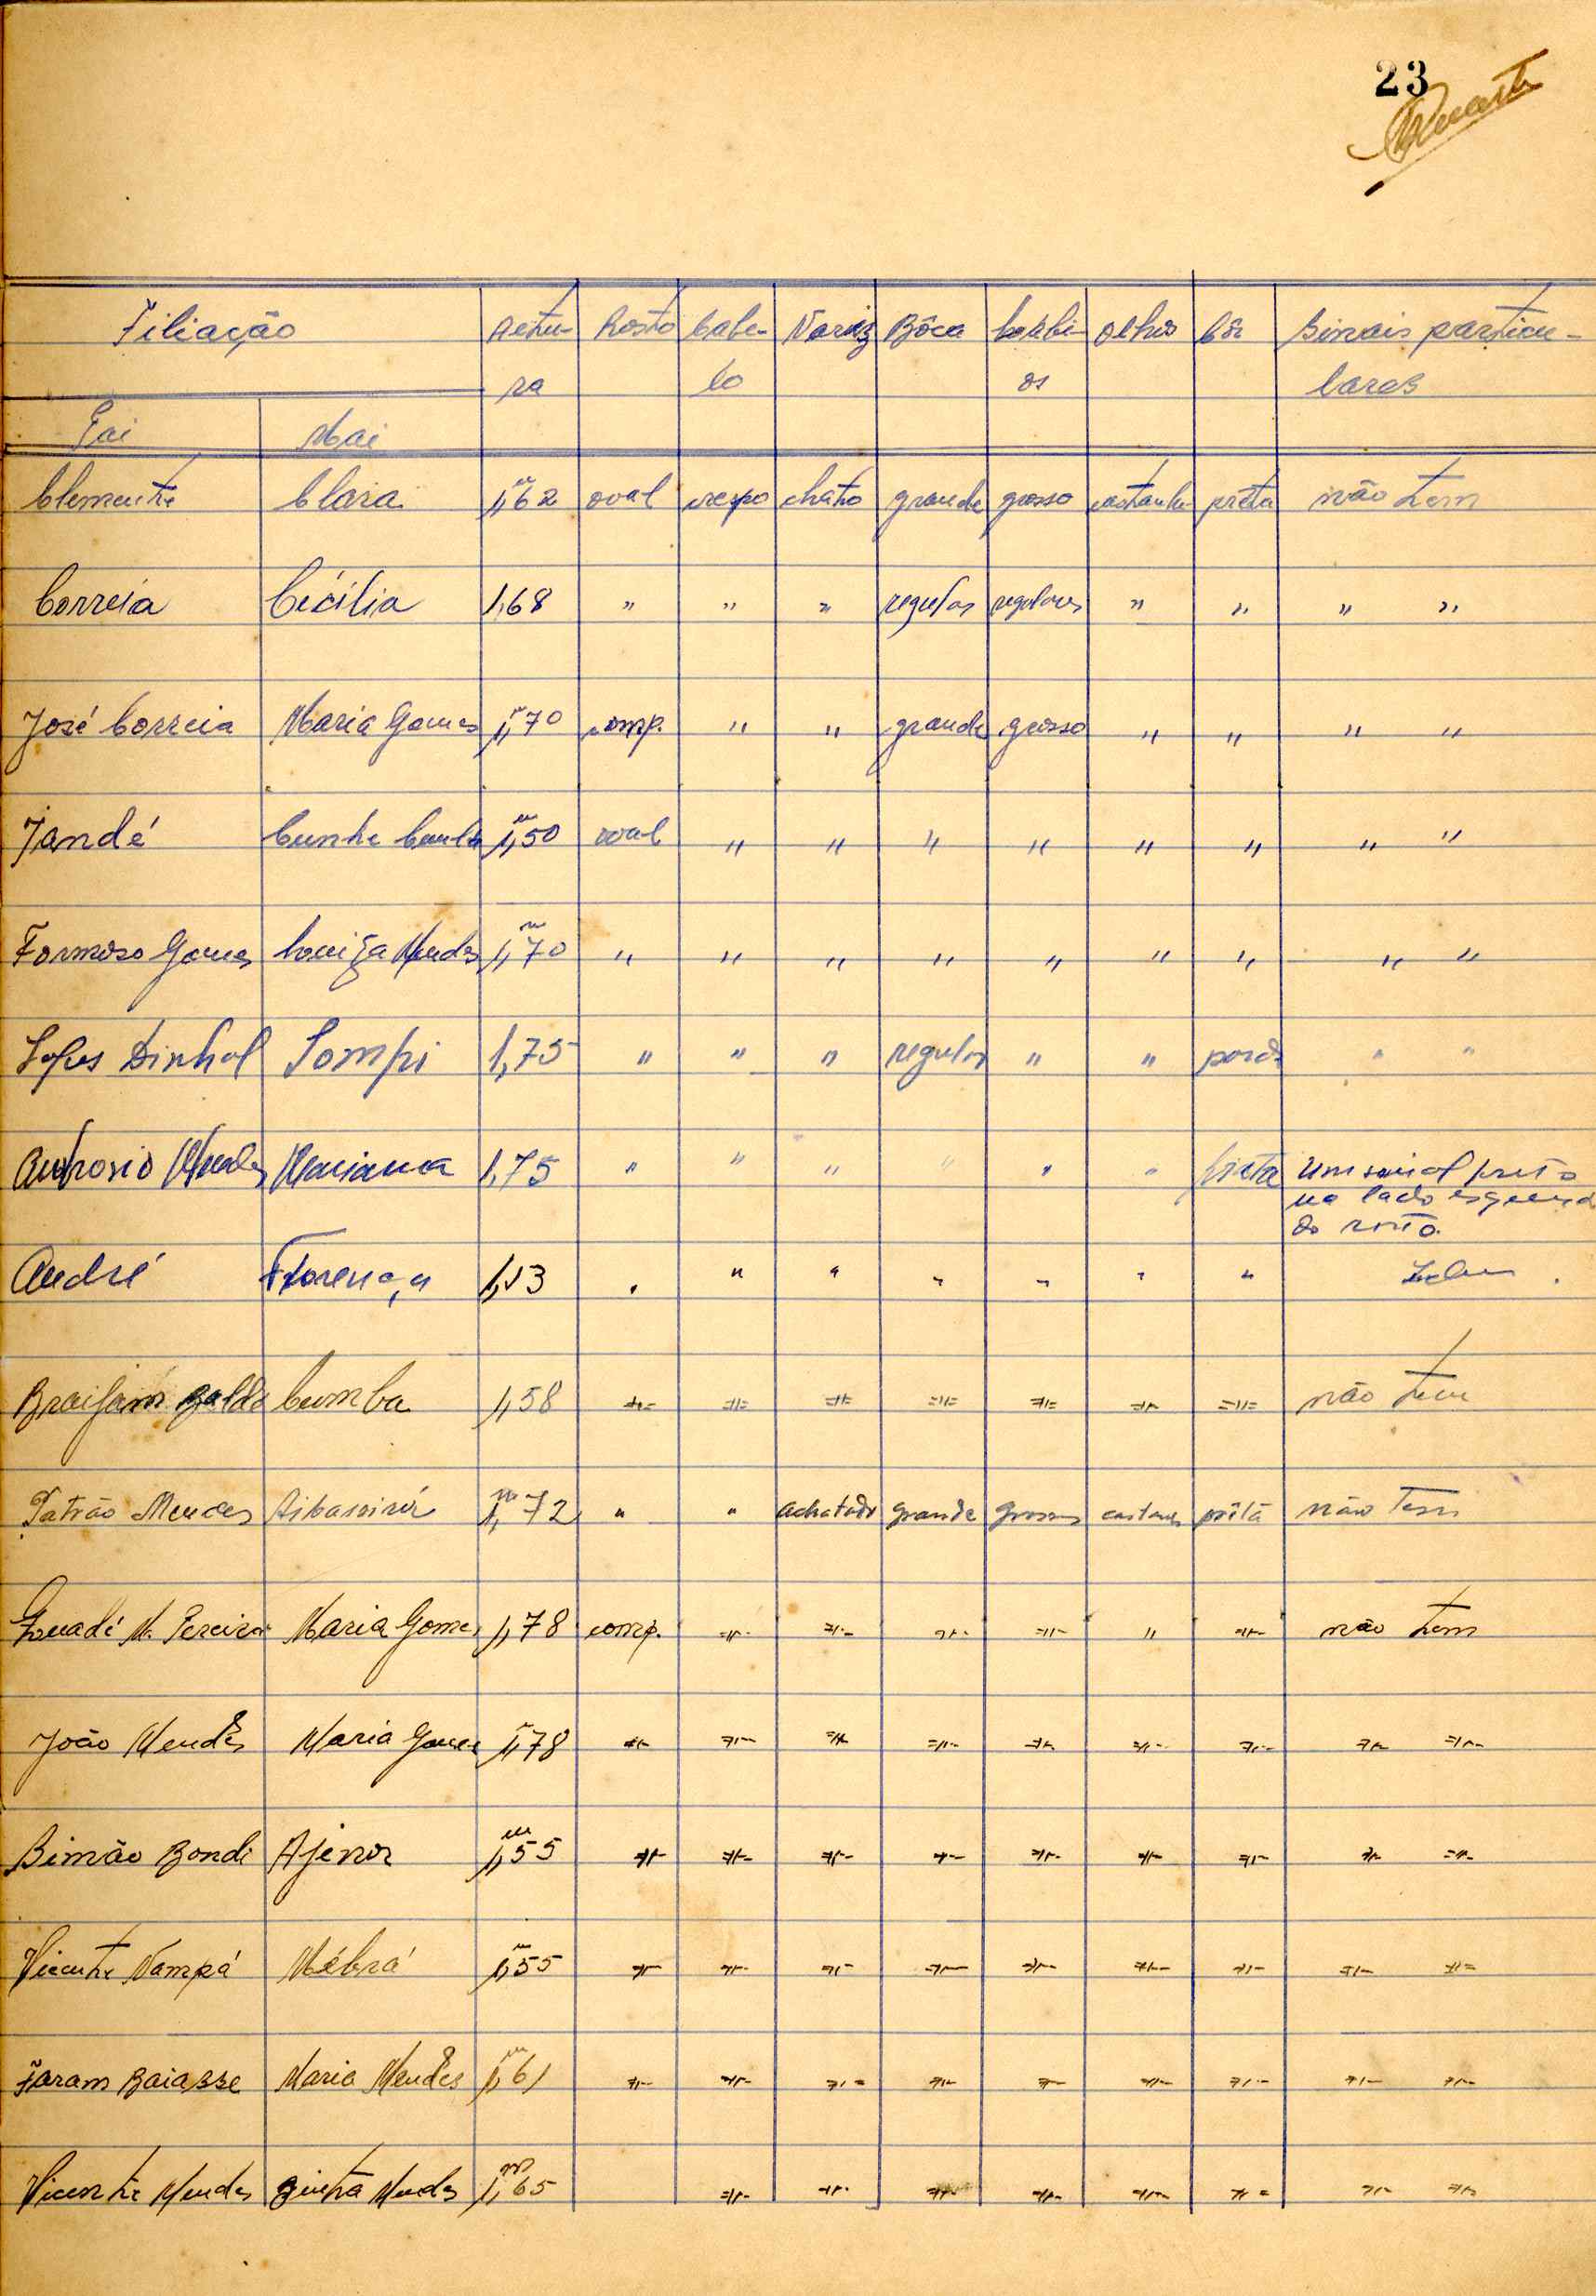 23
Filiação Altu- Rosto Cabe- Nariz Bôca Lábi- Olhos Côr Sinais particu-
ra lo os lares
Pai Mai
Clemente Clara 1,m62 oval crespo chato grande grosso castanho prêta não tem
Correia Cécília 1,68 " " " regular regulares " " " "
José Correia Maria Gomes 1,m70 comp. " " grande grosso " " " "
Jandé Cunhe 1,m50 oval " " " " " " " "
Formoso Gomes Louiça Mendes 1,m70 " " " " " " " " "
Lopes Dinhol Sompi 1,75 " " " regular " " parda " "
Ambrosio Mendes Mariana 1,75 " " " " " " preta Um sinal preto
no lado esquerdo
do rosto.
André Florença 1,13 " " " " " " "
Baldé Cumba 1,58 =//= =//= =//= =//= =//= =//= =//= não tem
Patrão Mendes 1,m72 " " achatado grande grossos castanhos prêta não tem
M. Pereira Maria Gomes 1,78 comp. =//= =//= =//= =//= " =//= não tem
João Mendes Maria Gomes 1,m78 =//= =//= =//= =//= =//= =//= =//= =//= =//=
Simão Bondi Ajenor 1,m55 =//= =//= =//= =//= =//= =//= =//= =//= =//=
Vicente Nampá Mébrá 1,m55 =//= =//= =//= =//= =//= =//= =//= =//= =//=
Faram Baiasse Maria Mendes 1,m61 =//= =//= =//= =//= =//= =//= =//= =//= =//=
Vicente Mendes Quinta Mendes 1,m65 =//= =//= =//= =//= =//= =//= =//= =//=